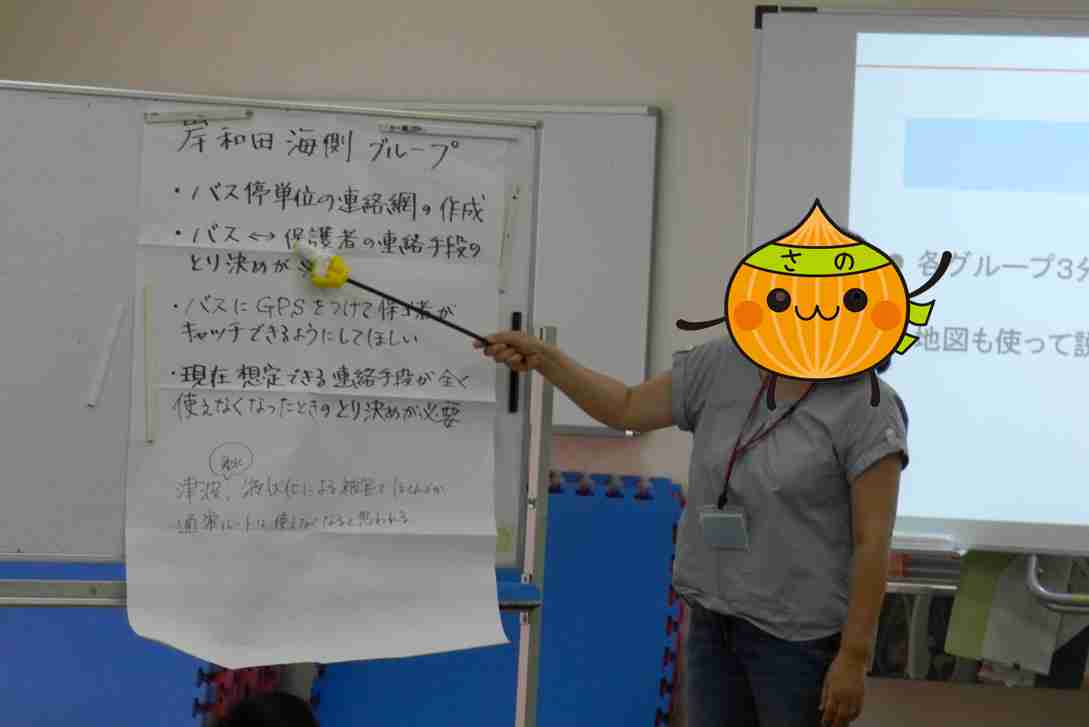 岸和田 海側 グループ
・バス停単位の連絡網の作成
・バス↔保護者の連絡手段の
とり決めが
・バスにGPSをつけて保護者が
キャッチできるようにしてほしい
・現在想定できる連絡手段が全く
使えなくなったときのとり決めが必要
津波、液状化による被害でほとんどが
通常ルートは使えなくなると思われる
さの
各グループ3分
地図も使って説